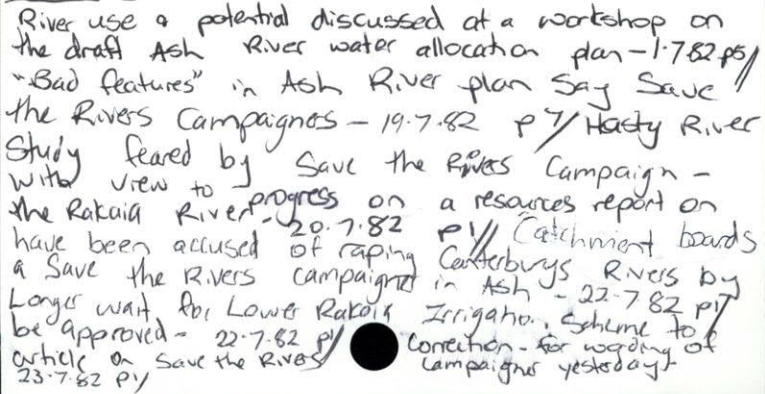 River use & potential discussed at a workshop on
the draft Ash River water allocation plan - 1.7.82 p5//
"Bad features" in Ash River plan Say Save
the Rivers Campaigners - 19.7.82 p7// Hasty River
Study feared by Save the Rivers Campaign -
with view to progress on a resources report on
the Rakaia River - 20.7.82 p1// Catchment boards
have been accused of raping Canterburys Rivers by
a Save the Rivers campaigner in Ash - 22.7.82 p1//
Longer wait for Lower Rakaia Irrigation Scheme to
be approved - 22.7.82 p1// Correction - for wording of
article on Save the Rivers campaigner yesterday -
23.7.82 p1//